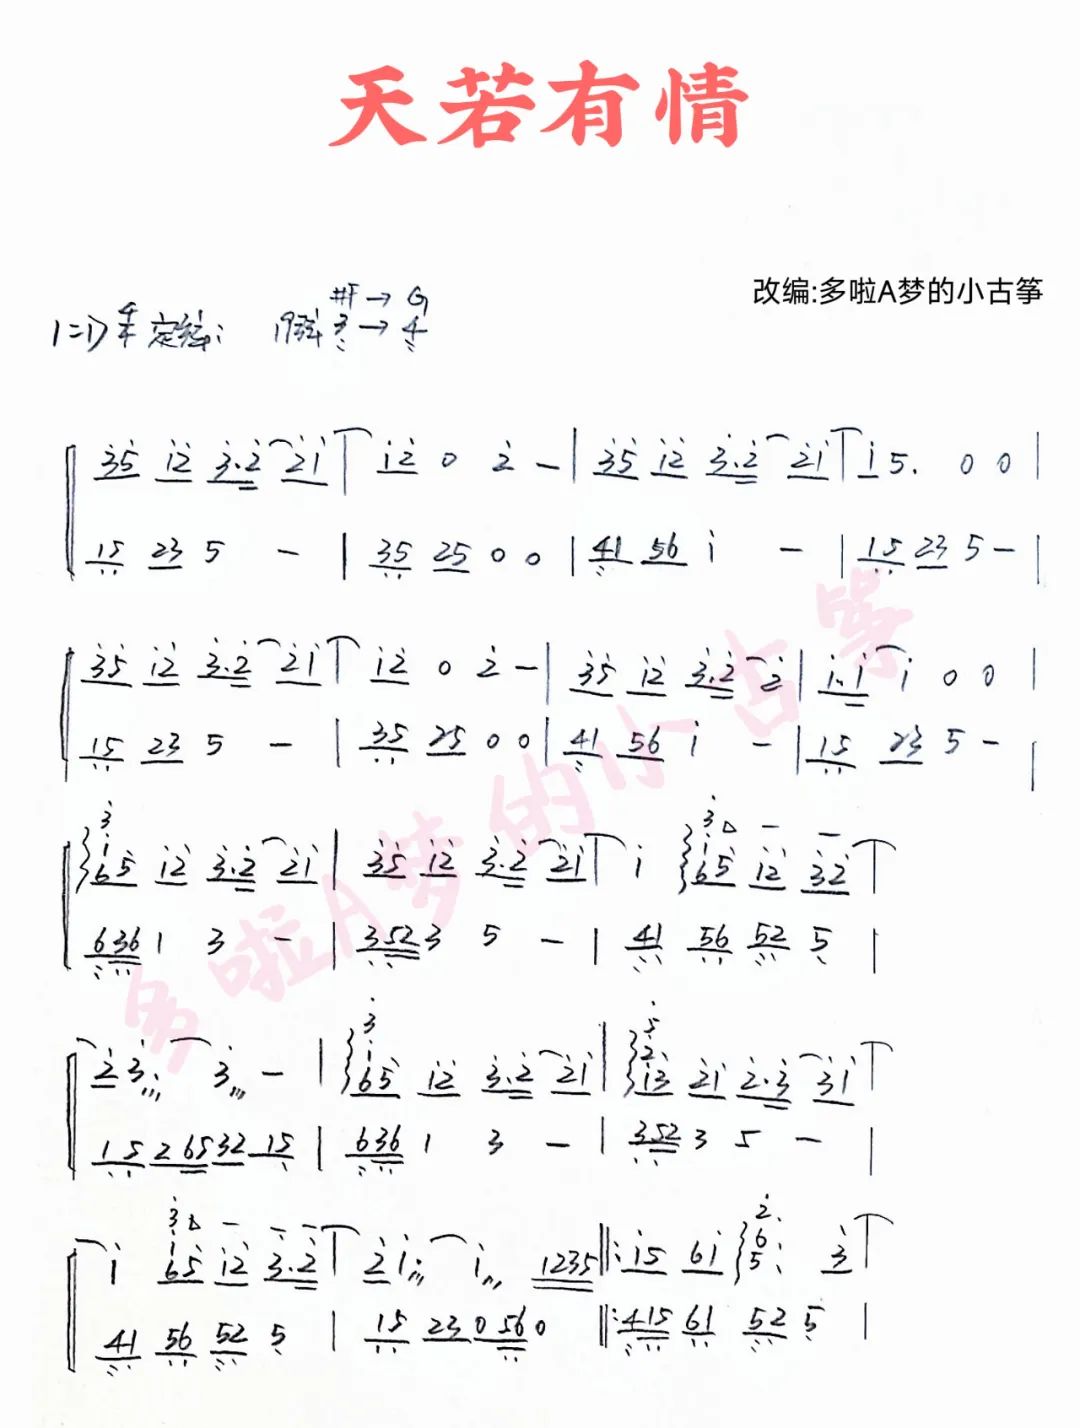 天若有情
改编:多啦A梦的小古筝
#F → G
1=D 4/4 定弦: 19弦 3 → 4
35 12 3.2 21 | 12 0 2 — | 35 12 3.2 21 | 1 5. 0 0 |
15 23 5 — | 35 25 0 0 | 41 56 1 — | 15 23 5 — |
35 12 3.2 21 | 12 0 2 — | 35 12 3.2 2 | 1.1 1 0 0 |
15 23 5 — | 35 25 0 0 | 41 56 1 — | 15 23 5 — |
3 3 — —
1 1
65 12 3.2 21 | 35 12 3.2 21 | 1 65 12 32 |
636 1 3 — | 352 3 5 — | 41 56 52 5 |
3 5
1 2
2 3 3 — | 65 12 3.2 21 | 13 21 2.3 31 |
15 2 65 32 15 | 636 1 3 — | 352 3 5 — |
3 — — — 2
1 6
1 65 12 3.2 | 2 1 1 1235 ‖: 15 61 5 3 |
41 56 52 5 | 15 23 0 56 0 ‖: 415 61 52 5 |
多啦A梦的小古筝